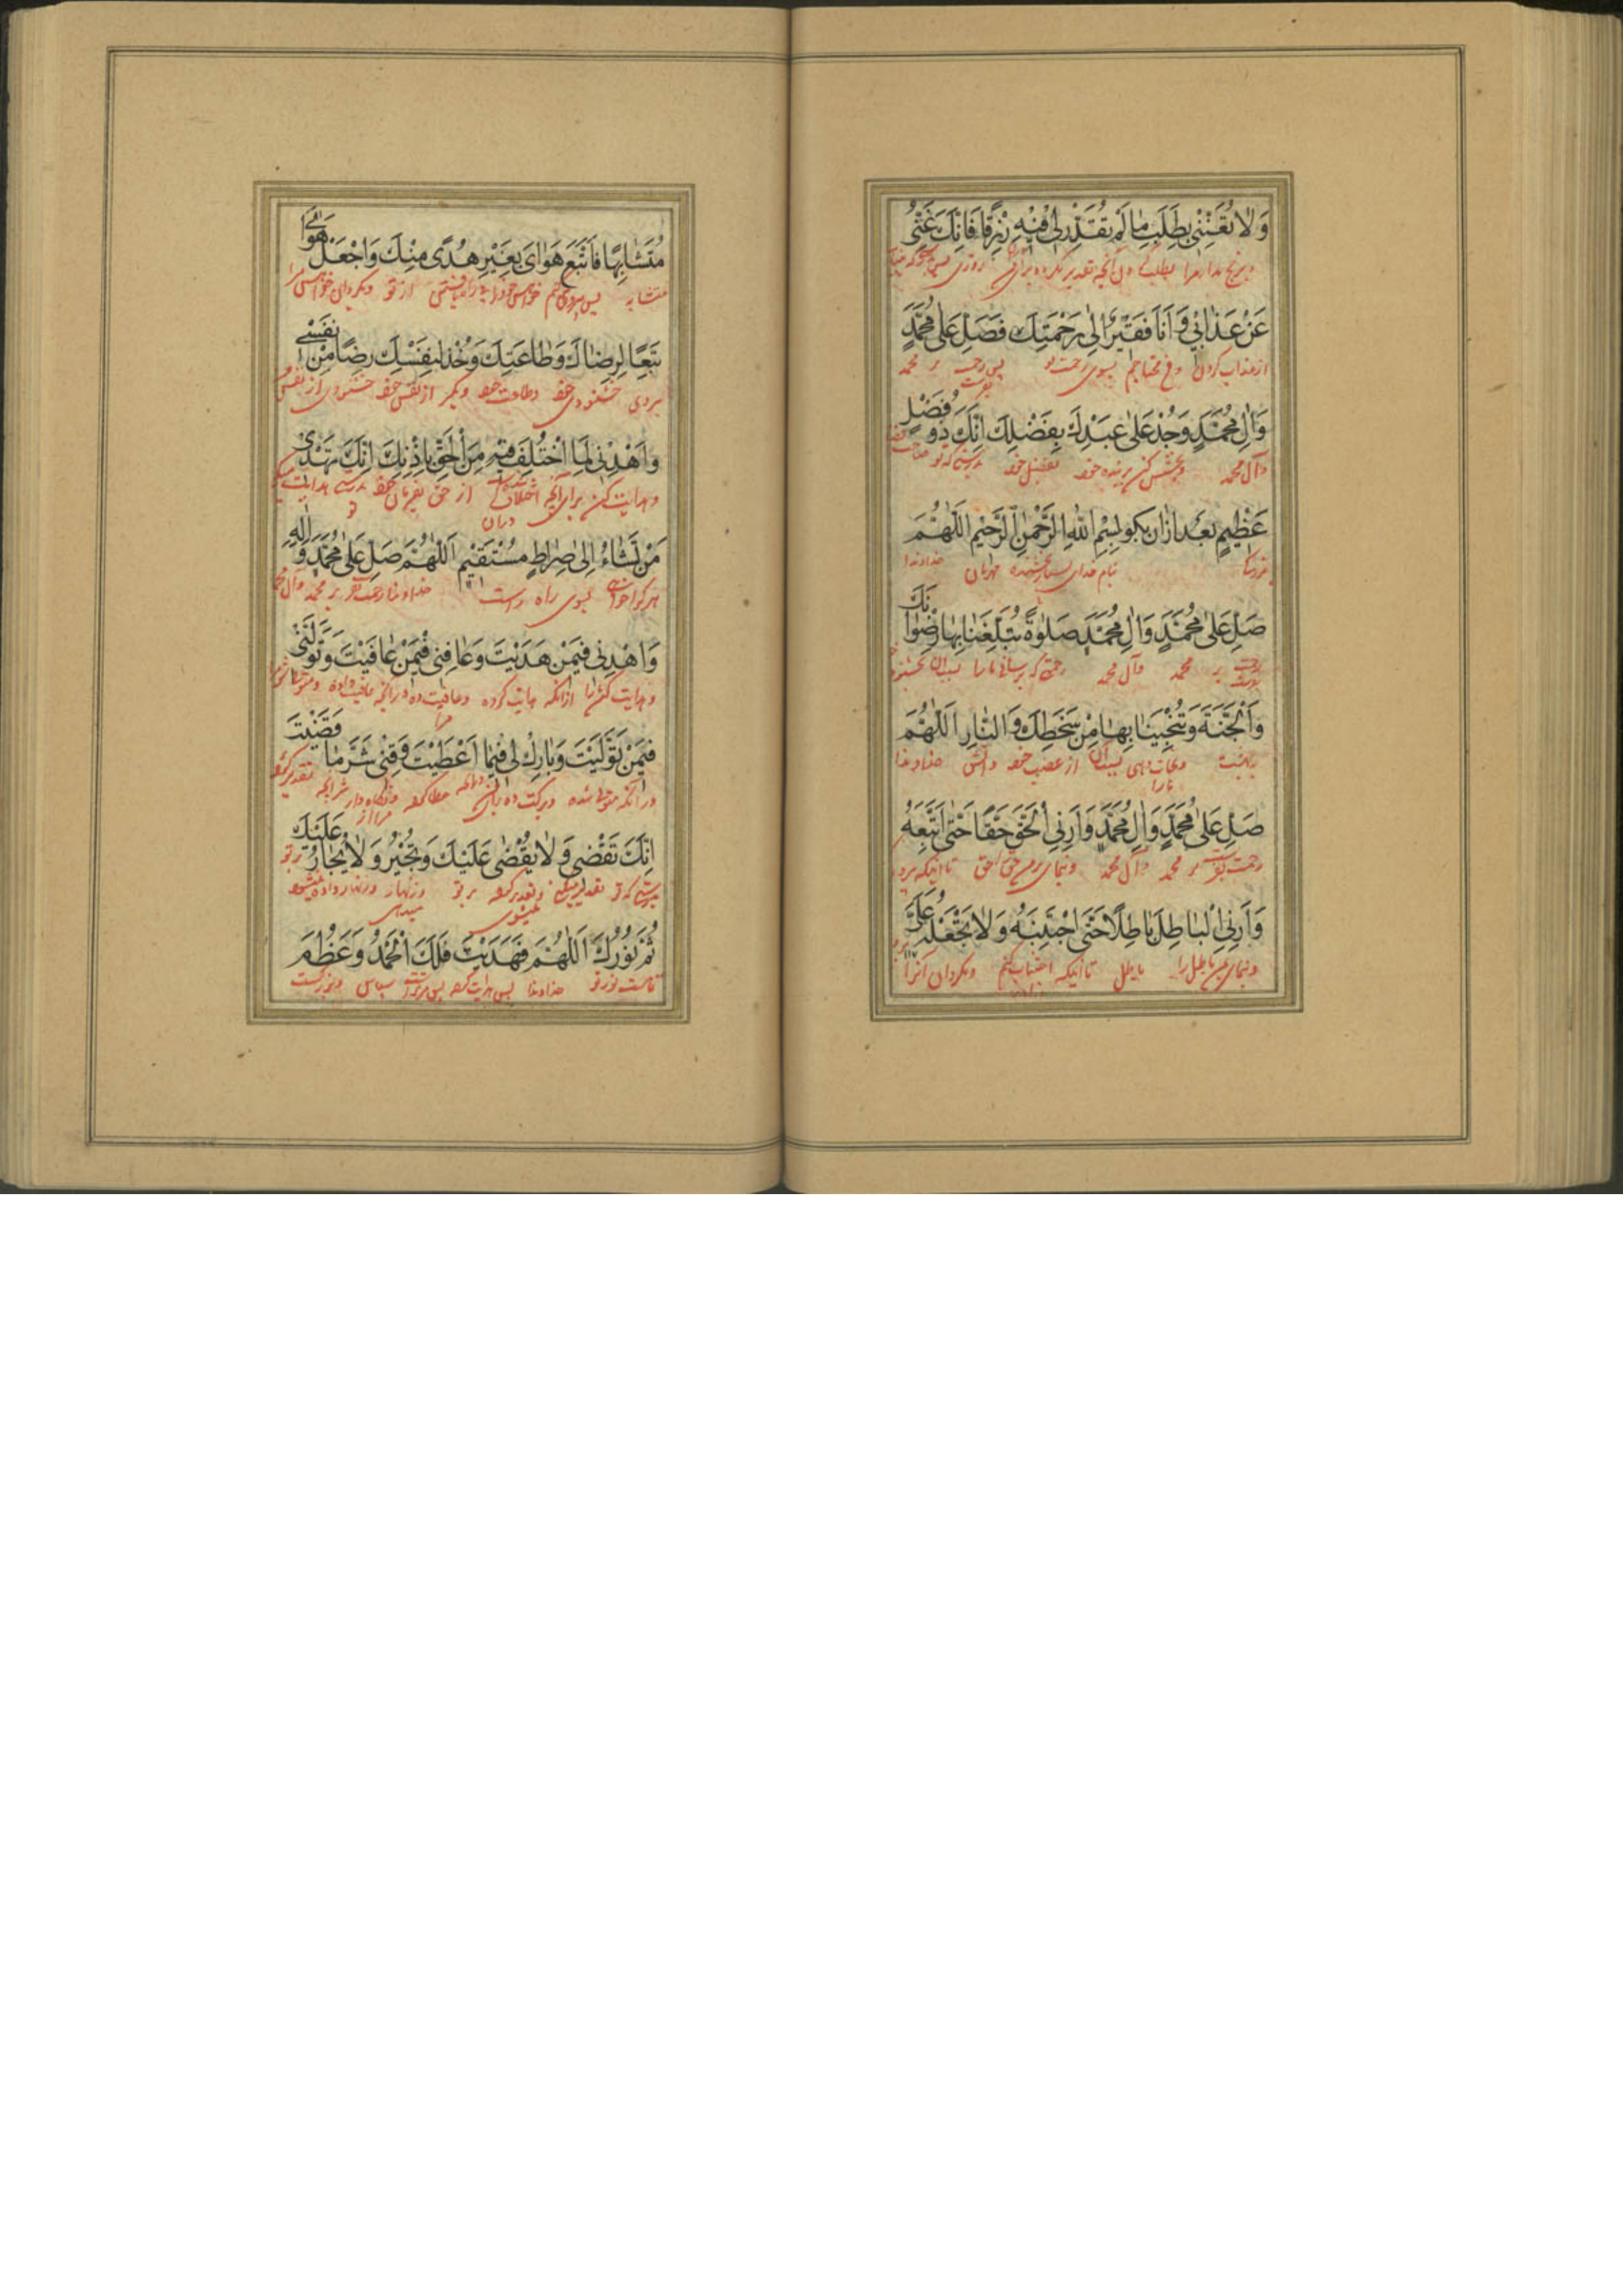 وَلَا تُعَنِّنِي بِطَلَبِ مَا لَمْ تُقَدِّرْ لِي فِيهِ رِزْقًا فَإِنَّكَ غَنِيٌّ
و برنج مدار مرا بطلب آنچه تقدیر نکرده برای من روزی
عَنْ عَذَابِي وَأَنَا فَقِيرٌ إِلَى رَحْمَتِكَ فَصَلِّ عَلَى مُحَمَّدٍ
از عذاب کردن من محتاجم بسوی رحمت تو پس رحمت بفرست بر محمد
وَآلِ مُحَمَّدٍ وَجُدْ عَلَى عَبْدِكَ بِفَضْلِكَ إِنَّكَ ذُو فَضْلٍ
و آل محمد و بخشش کن بر بنده خود بفضل خود بدرستی که تو صاحب
عَظِيمٍ بعد ازان بکو بِسْمِ اللَّهِ الرَّحْمَنِ الرَّحِيمِ اللَّهُمَّ
بنام خدای بسیار بخشنده مهربان خداوندا
صَلِّ عَلَى مُحَمَّدٍ وَآلِ مُحَمَّدٍ صَلَوةً تُبَلِّغُنَا بِهَا رِضْوَانَكَ
رحمت بفرست بر محمد و آل محمد رحمتی که برسانی ما را بسبب آن
وَالْجَنَّةَ وَتُنْجِينَا بِهَا مِنْ سَخَطِكَ وَالنَّارِ اللَّهُمَّ
بهشت و نجات دهی بسبب آن ما را از غضب خود و آتش خداوندا
صَلِّ عَلَى مُحَمَّدٍ وَآلِ مُحَمَّدٍ وَأَرِنِي الْحَقَّ حَقًّا حَتَّى أَتَّبِعَهُ
رحمت بفرست بر محمد و آل محمد و بنمای بمن حق را حق تا اینکه
وَأَرِنِي الْبَاطِلَ بَاطِلًا حَتَّى أَجْتَنِبَهُ وَلَا تَجْعَلْهُ عَلَيَّ
و بنمای بمن باطل را باطل تا اینکه اجتناب کنم و مکردان آنرا
مُتَشَابِهًا فَأَتَّبِعَ هَوَايَ بِغَيْرِ هُدًى مِنْكَ وَاجْعَلْ هَوَايَ
متشابه پس پیروی کنم خواهش خود را از تو و بکردان خواهش مرا
تَبَعًا لِرِضَاكَ وَطَاعَتِكَ وَخُذْ لِنَفْسِكَ رِضًا مِنْ نَفْسِي
پیروی خشنودی خود و طاعت خود و بکیر از نفس خود خشنودی از نفس
وَاهْدِنِي لِمَا اخْتُلِفَ فِيهِ مِنَ الْحَقِّ بِإِذْنِكَ إِنَّكَ تَهْدِي
و هدایت کن برای آنچه اختلاف شده دران از حق بفرمان خود بدرستی تو هدایت میکنی
مَنْ تَشَاءُ إِلَى صِرَاطٍ مُسْتَقِيمٍ اللَّهُمَّ صَلِّ عَلَى مُحَمَّدٍ وَآلِهِ
هر که را خواهی بسوی راه راست خداوندا رحمت بفرست بر محمد و آل محمد
وَاهْدِنِي فِيمَنْ هَدَيْتَ وَعَافِنِي فِيمَنْ عَافَيْتَ وَتَوَلَّنِي
و هدایت کن مرا ازانکه هدایت کرده و عافیت ده مرا درآنچه عافیت داده
فِيمَنْ تَوَلَّيْتَ وَبَارِكْ لِي فِيمَا أَعْطَيْتَ وَقِنِي شَرَّ مَا قَضَيْتَ
درآنکه متولی شده و برکت ده برای من درآنچه عطا کرده و نگاه دار مرا از شر آنچه تقدیر کرده
إِنَّكَ تَقْضِي وَلَا يُقْضَى عَلَيْكَ وَتُجِيرُ وَلَا يُجَارُ عَلَيْكَ
بدرستی که تو تقدیر میکنی و تقدیر کرده نمیشوی بر تو و زنهار میدهی و زنهار داده نمیشود بر تو
تُمَّ نُورُكَ اللَّهُمَّ فَهَدَيْتَ فَلَكَ الْحَمْدُ وَعَظُمَ
تمامست نور تو خداوندا پس هدایت کرده پس مر تراست سپاس و بزرکست